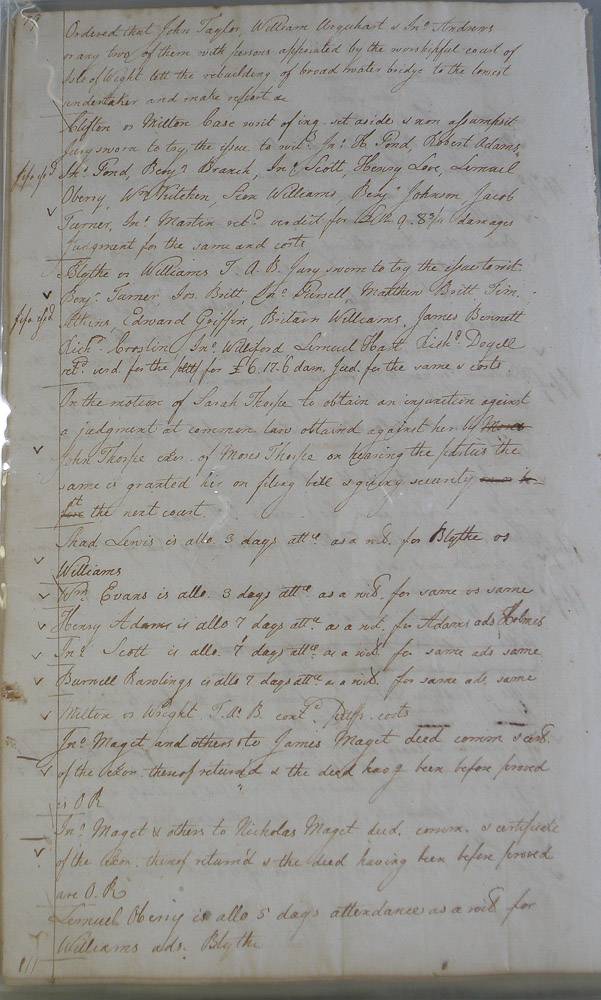 Ordered that John Taylor, William Urquhart & Jno. Andrews
or any two of them with persons appointed by the worshipful court of
Isle of Wight lett the rebuilding of broad water bridge to the lowest
undertaker and make report &c
Clifton vs Milton Case writ of inq. set aside & non assumpsit
Jury sworn to try the issue to wit. Jno. R Pond, Robert Adams,
Pond, Benjn. Branch, Jno. Scott, Henry Love, Lemuel
Oberry, Wm. Kitchen, Williams, Benjn. Johnson, Jacob
Turner, Jno. Martin retd. verdict for damages
Judgment for the same and costs
Blythe vs Williams T. A. B. Jury sworn to try the issue to wit
Benjn. Turner, Jos. Britt, Jno. Pursell, Matthew Britt, Tim.
Atkins, Edward Griffin, Britain Williams, James Bennett
Richd. Croslin, Jno. Williford, Lemuel Hart, Richd. Dogell
retd. verd. for the pltt. for £6.17.6 dam. Jud. for the same & costs.
On the motion of Sarah Thorpe to obtain an injunction against
a judgment at common law obtained against her by Moses
John Thorpe exer. of Moses Thorpe on hearing the parties the
same is granted her on filing bill & giving security
the next court.
Shad. Lewis is allo. 3 days attce. as a wit. for Blythe vs
Williams
Wm. Evans is allo. 3 days attce. as a wit. for same vs same
Henry Adams is allo 7 days attce. as a wit. for Adams ads Holmes
Jno. Scott is allo. 7 days attce. as a wit. for same ads same
Burwell Rawlings is allo 7 days attce. as a wit. for same ads same
Milton vs Wright T. A. B. contd. Deffs. costs
Jno. Maget and others to James Maget deed comm & cert.
of the Exon. thereof return'd & the deed havg been before proved
is O R
Jno. Maget & others to Nicholas Maget deed, comm. & certificate
of the Exon. thereof return'd & the deed having been before proved
are O. R
Lemuel Oberry is allo 5 days attendance as a wit. for
Williams ads. Blythe